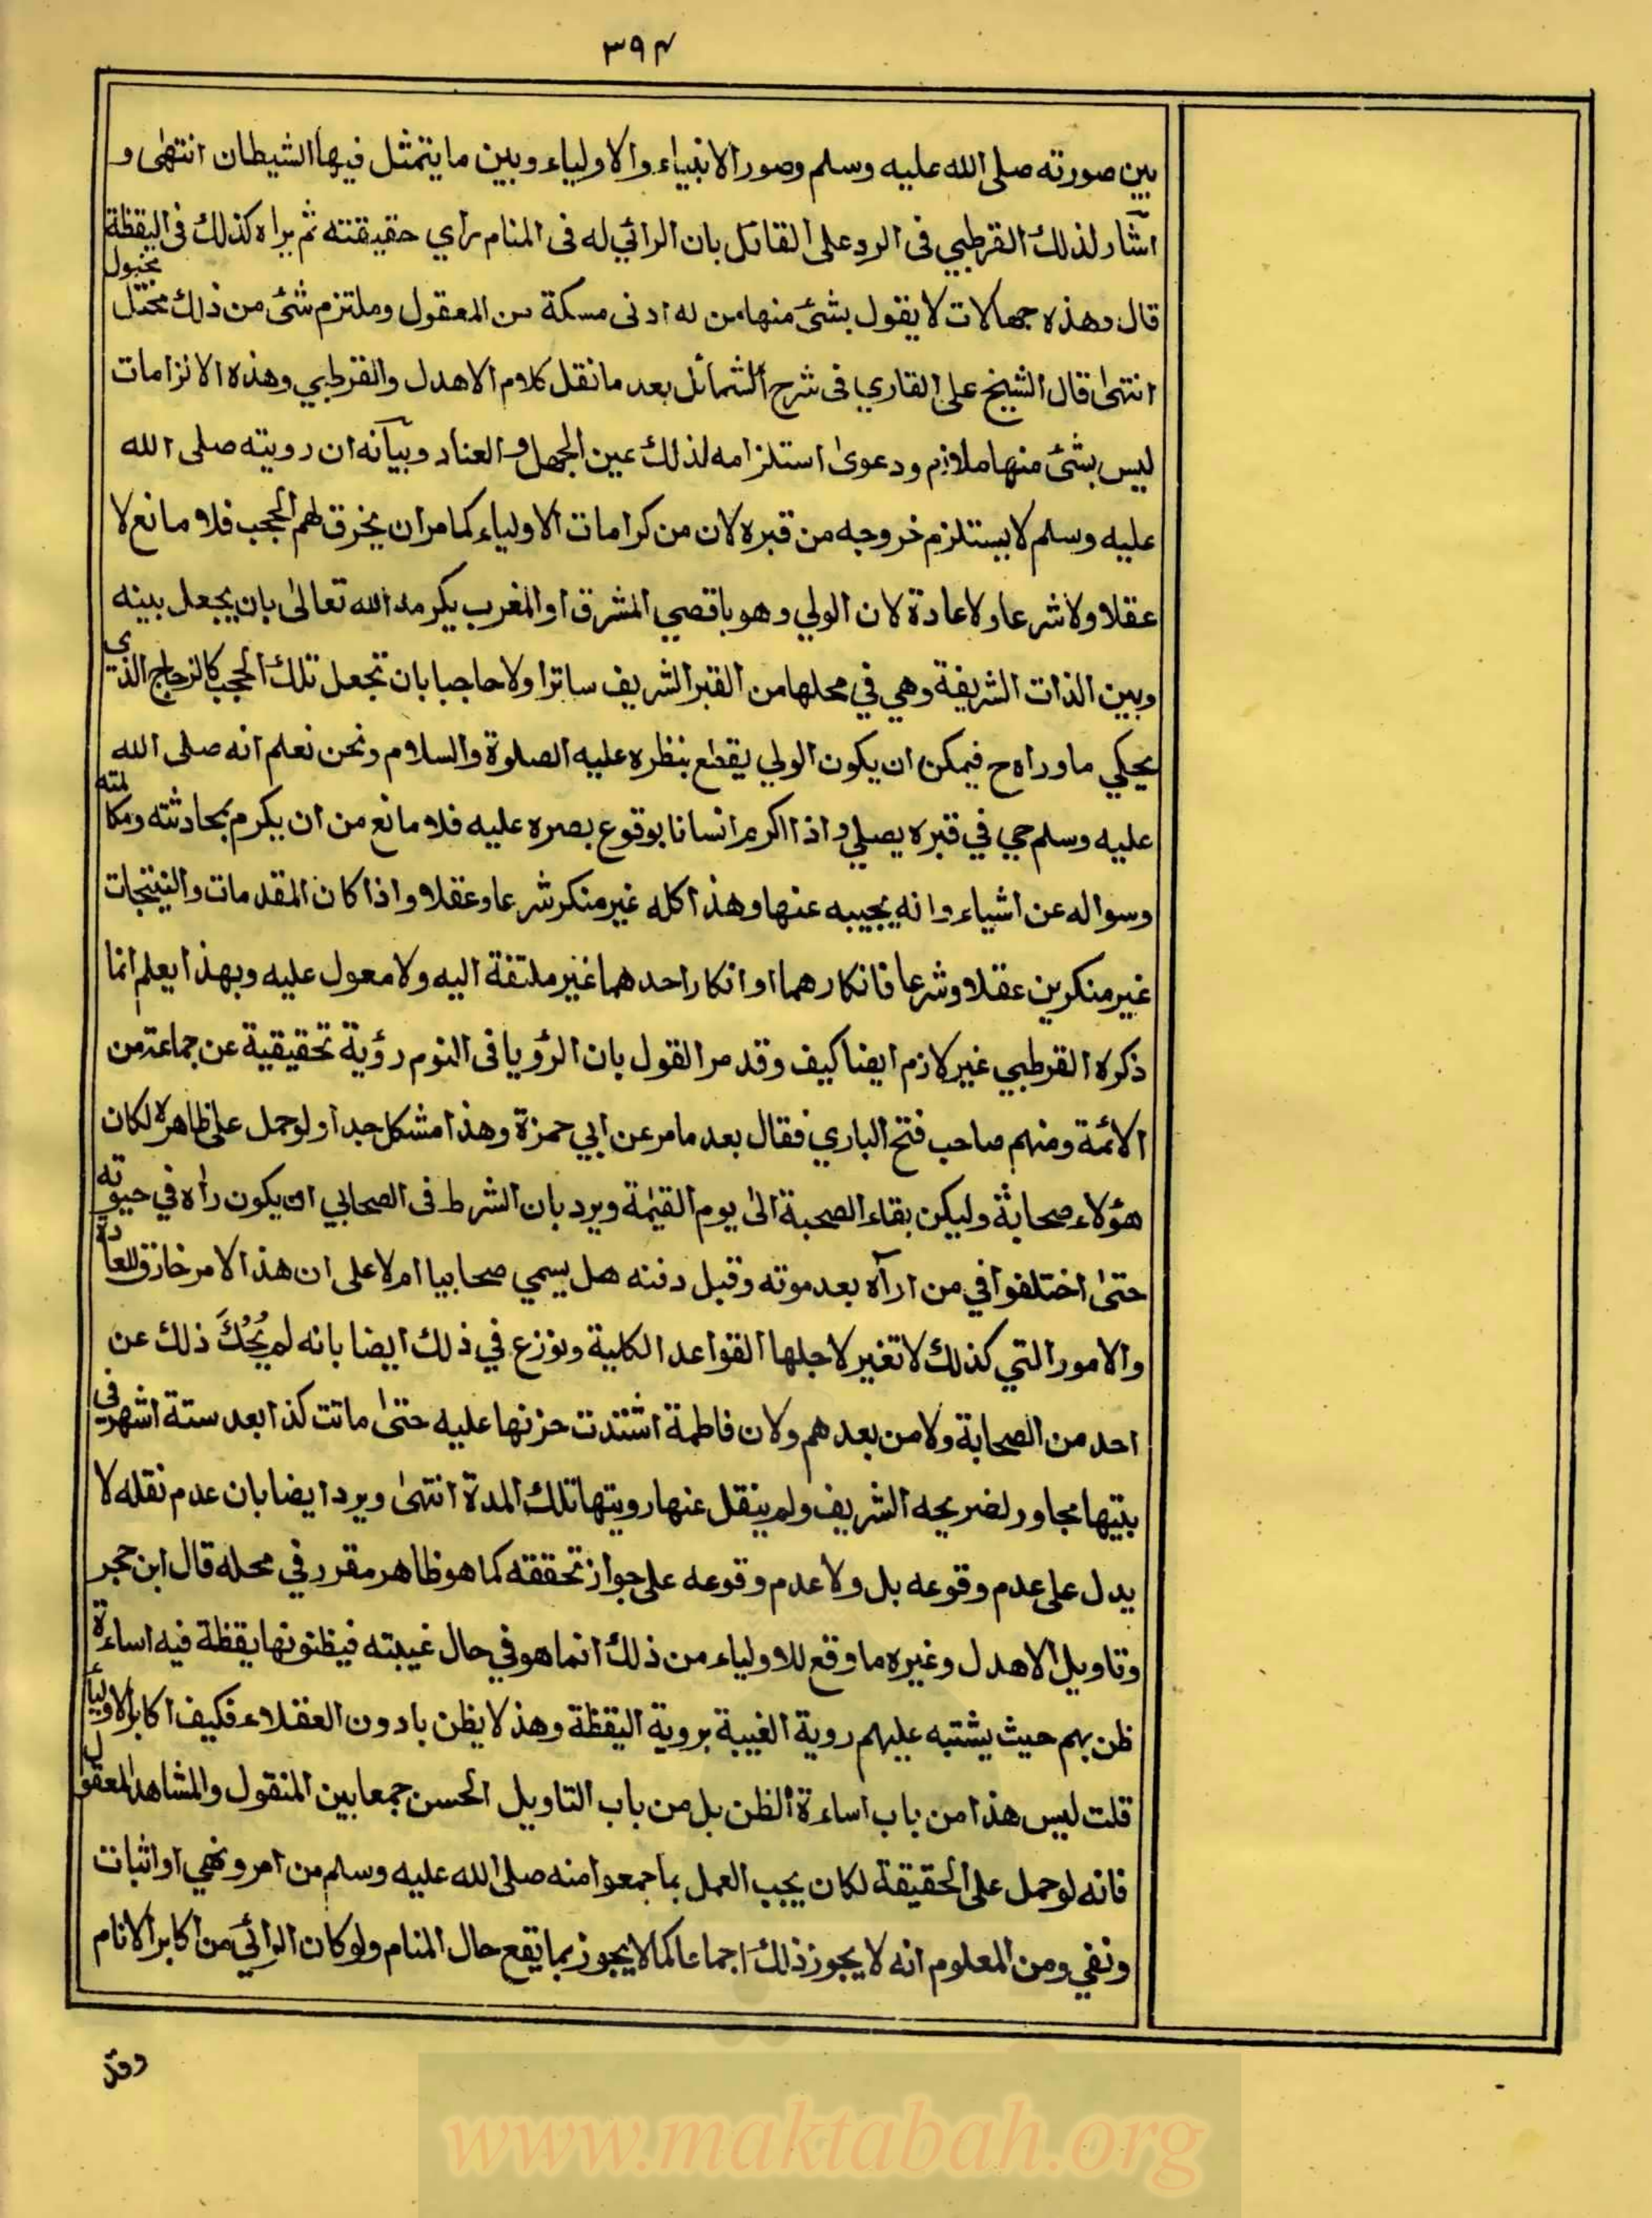 ٣٩٤
بين صورته صلى الله عليه وسلم وصور الانبياء والاولياء وبين ما يتمثل فيها الشيطان انتهى و
اشار لذلك القرطبي فى الرد على القائل بان الرائي له فى المنام راي حقيقته ثم يراه كذلك فى اليقظة
قال وهذه جهالات لا يقول بشئ منها من له ادنى مسكة من المعقول وملتزم شئ من ذلك مختل مخبول
انتهى قال الشيخ على القاري فى شرح الشمائل بعد ما نقل كلام الاهدل والقرطبي وهذه الالزامات
ليس بشئ منها ملازم ودعوى استلزامه لذلك عين الجهل والعناد وبيانه ان رويته صلى الله
عليه وسلم لا يستلزم خروجه من قبره لان من كرامات الاولياء كما مران يخرق لهم الحجب فلا مانع لا
عقلا ولا شرعا ولا عادة لان الولي وهو باقصي المشرق او المغرب يكرمه الله تعالى بان يجعل بينه
وبين الذات الشريفة وهي في محلها من القبر الشريف ساترا ولا حاجبا بان تجعل تلك الحجب كالزجاج الذي
يحكي ما وراه ح فيمكن ان يكون الولي يقطع بنظره عليه الصلوة والسلام ونحن نعلم انه صلى الله
عليه وسلم حي في قبره يصلي واذا اكرم انسانا بوقوع بصره عليه فلا مانع من ان يكرم بمحادثته ومكالمته
وسواله عن اشياء وانه يجيبه عنها وهذا كله غير منكر شرعا وعقلا واذا كان المقدمات والنتيجات
غير منكرين عقلا وشرعا فانكارهما او انكار احدهما غير ملتفة اليه ولا معول عليه وبهذا يعلم انما
ذكره القرطبي غير لازم ايضا كيف وقد مر القول بان الرؤيا فى النوم رؤية تحقيقية عن جماعة من
الائمة ومنهم صاحب فتح الباري فقال بعد ما مر عن ابي حمزة وهذا مشكل جدا ولو حمل على ظاهره لكان
هؤلاء صحابة وليكن بقاء الصحبة الى يوم القيمة ويرد بان الشرط فى الصحابي ان يكون راه في حيوته
حتى اختلفوا في من اراه بعد موته وقبل دفنه هل يسمي صحابيا ام لا على ان هذا الامر خارق للعادة
والامور التي كذلك لا تغير لاجلها القواعد الكلية ونوزع في ذلك ايضا بانه لم يُحْكَ ذلك عن
احد من الصحابة ولا من بعدهم ولان فاطمة اشتدت حزنها عليه حتى ماتت كذا بعد ستة اشهر في
بيتها مجاور لضريحه الشريف ولم ينقل عنها رويتها تلك المدة انتهى ويرد ايضا بان عدم نقله لا
يدل على عدم وقوعه بل ولا عدم وقوعه على جواز تحققه كما هو ظاهر مقرر في محله قال ابن حجر
وتاويل الاهدل وغيره ما وقع للاولياء من ذلك انما هو في حال غيبته فيظنونها يقظة فيه اساءة
ظن بهم حيث يشتبه عليهم روية الغيبة بروية اليقظة وهذ لا يظن بادون العقلاء فكيف اكابر الاولياء
قلت ليس هذا من باب اساءة الظن بل من باب التاويل الحسن جمعا بين المنقول والمشاهد المعقول
فانه لو حمل على الحقيقة لكان يجب العمل بما جمعوا منه صلى الله عليه وسلم من امر ونهي او اثبات
ونفي ومن المعلوم انه لا يجوز ذلك اجماعا كما لا يجوز بما يقع حال المنام ولو كان الرائي من اكابر الانام
وقد
www.maktabah.org